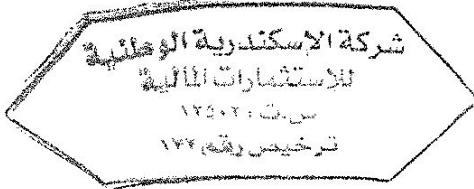 شركة الإسكندرية الوطنية
للاستثمارات المالية
س.ت : ١٢٥٠٢٠
ترخيص رقم ١٧٢